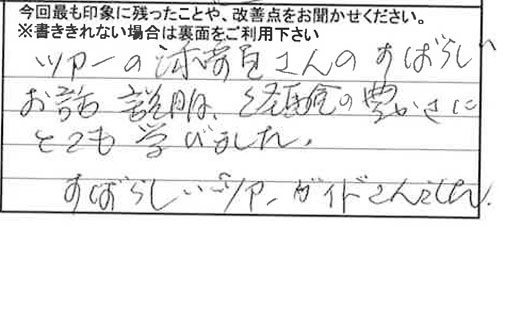 今回最も印象に残ったことや、改善点をお聞かせください。
※書ききれない場合は裏面をご利用下さい
ツアーの添乗員さんのすばらしい
お話 説明、経験の豊かさに
とても学びました。
すばらしいツアーガイドさんでした